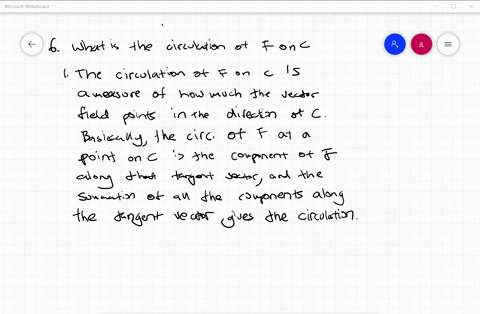 Microsoft Whiteboard
6. What is the circulation of F on C
1. The circulation of F on C is
a measure of how much the vector
field points in the direction of C.
Basically, the circ. of F at a
point on C is the component of F
along that tangent vector, and the
summation of all the components along
the tangent vector gives the circulation.
JL